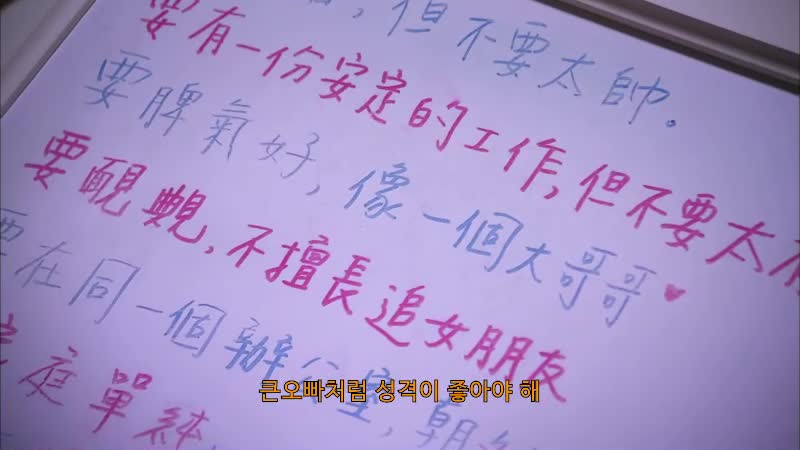 ，但不要太帥。
要有一份安定的工作，但不要太
要脾氣好，像一個大哥哥♥
要靦覥，不擅長追女朋友
要在同一個辦公室，朝
家庭單純
큰오빠처럼 성격이 좋아야 해